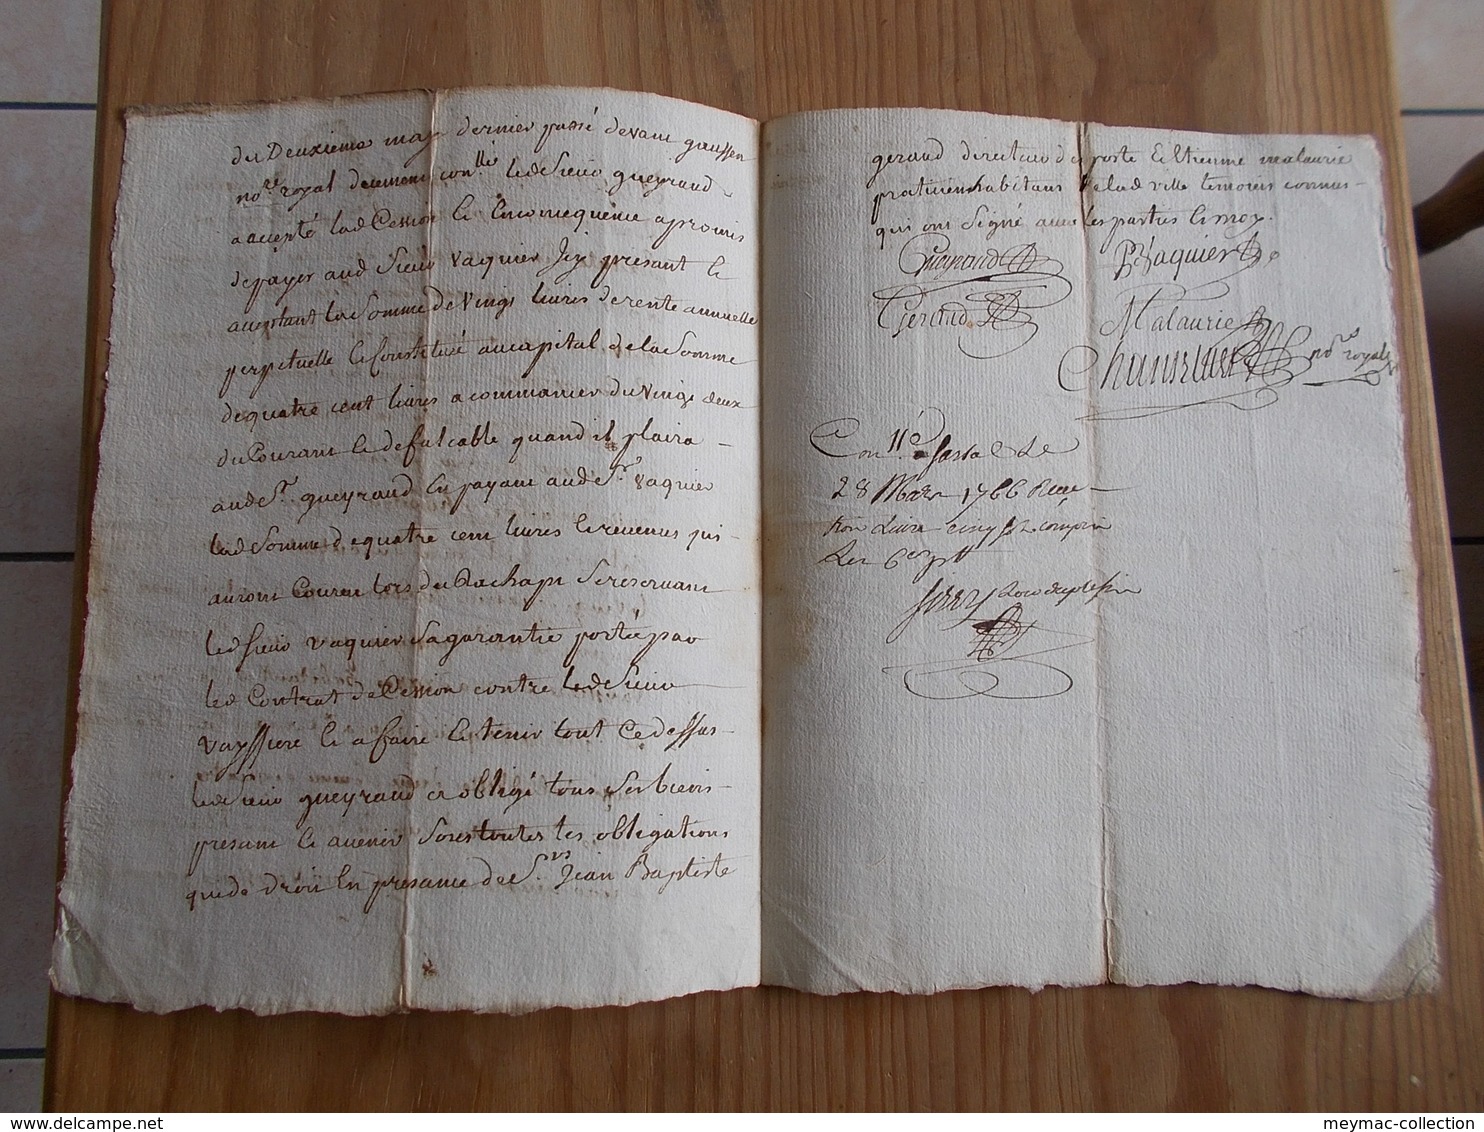 du Deuxieme may dernier passé devant gaussen
no.re royal deuement con.llé led Sieur gueyrand
a accepté lad Cession le Enconsequence a promis
de payer aud Sieur vaquier Jcy présant le
aceptant la Somme de vingt livres de rente annuelle
perpetuelle le Constitué au capital de la Somme
de quatre cent livres a commancer du vingt deux
du Courant le defalcable quand il plaira -
aud S.r gueyrand En payant aud S.r vaquier
lad Somme de quatre cent livres le revenus qui -
auront Couru lors du Rachapt Se reservant
led Sieur vaquier Sa garantie portée par
led Contrat de Cession contre led Sieur
vayssiere le a faire le tenir tout Ce dessus -
led Sieur gueyrand a obligé tous Ses biens -
présant le avenir Sous toutes les obligations
que de droit En présance de S.rs Jean Baptiste
gerand directeur des poste Et Etienne malaurie
praticien habitans de lad ville temoins connus -
qui ont Signé avec les parties le moy.
Gueyrand
P Vaquier
Gerand
Malaurie
no.re royal
Con.llé
28 Mars 1766 Reçu
livre cinq s. compris
les 6